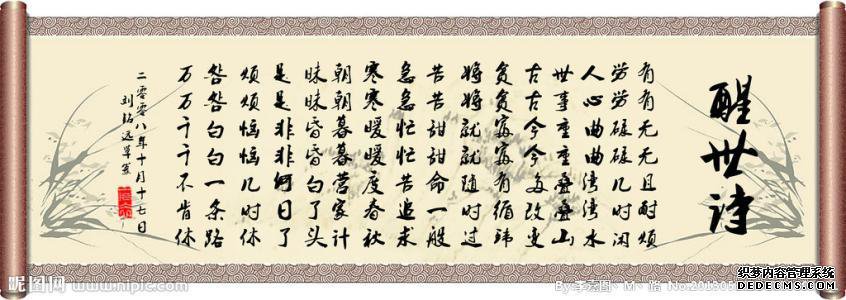 醒世诗
有有无无且耐烦
劳劳碌碌几时闲
人心曲曲湾湾水
世事重重叠叠山
古古今今多改变
贫贫富富有循环
将将就就随时过
苦苦甜甜命一般
急急忙忙苦追求
寒寒暖暖度春秋
朝朝暮暮营家计
昧昧昏昏白了头
是是非非何日了
烦烦恼恼几时休
明明白白一条路
万万千千不肯休
二零零八年十月十七日
昵图网 www.nipic.com
织梦内容管理系统
DEDECMS.COM